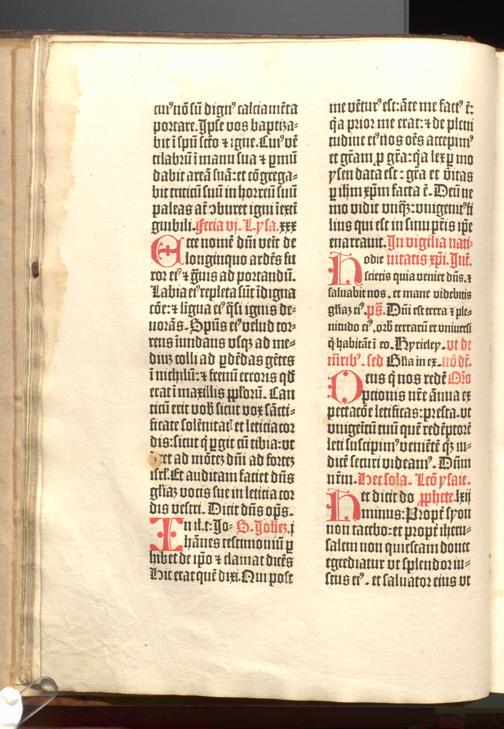 cui⁹ nō sū dign⁹ calciamēta
portare. Ipse vos baptiza-
bit ī spū scto ⁊ igne. Cui⁹ vē
tilabrū ī manu sua ⁊ pmū
dabit areā suā: et cōgrega-
bit triticū suū in horreū suū
paleas at̄ ↄburet igni īexti
guibili. Feria vj. Lysa. xxx
Ecce nomē dn̄i veīt de
longinquo ardēs fu
ror ei⁹ ⁊ gͣuis ad portandū.
Labia ei⁹ repleta sūt īdigna
cōe: ⁊ ligua ei⁹ q̄si ignis de-
uorās. Spūs ei⁹ velud tor-
rens īundans vsq; ad me-
diuz colli ad ꝑdēdas gētes
ī nichilū: ⁊ frenū erroris qd̄
erat ī maxillis ppl'orū. Can
ticū erit vob̄ sicut vox sācti-
ficate solēnitat̄ et leticia cor
dis: sicut q̇ ꝑgit cū tibia: vt
ītret ad mōtē dn̄i ad fortez
isrl'. Et auditam faciet dn̄s
gl'iaz vocis sue in leticia cor
dis vestri. Dicit dn̄s op̄s.
In il. t: Jo- S. Johez. j
hānes testimoniū ꝑ
hibet de ip̄o ⁊ clamat dicēs
Hic erat quē dixi. Qui post
me vētur⁹ est: āte me fact⁹ ē:
q̇a prior me erat: ⁊ de pleni
tudine ei⁹ nos oēs accepim⁹
et gr̄am, ꝓ gr̄a: q̇a lex ꝑ mo
ysen data est: gr̄a et v̄itas
ꝑ ihm xp̄m facta ē. Deū ne
mo vidit vnq̄z: vnigenit⁹ fi
lius qui est in sinu pr̄is ip̄e
enarrauit. In vigilia nati-
Hodie uitatis xp̄i. Int̄.
scietis quia veniet dn̄s. ⁊
saluabit nos. et mane videbitis
gl'iaz ei⁹. ps̄. Dn̄i est terra ⁊ ple-
nitudo ei⁹. orb̄ terrarū et vniuersi
q̇ habitāt ī eo. Kyrieley. vt de
mr̄ib⁹. sed Gl'ia in ex. nō dr̄.
Deus q̇ nos redē Oro
ptionis nr̄e ānua ex
pectacōe letificas: presta. vt
vnigeītū tuū quē redēptorē
leti suscipim⁹ veniētē q̄z iu-
dicē securi videam⁹. Dn̄m
nr̄m. Hec sola. Lcō ysaie.
Hec dicit do p̄phete. lxij
minus: Propt̄ syon
non tacebo: et propt̄ iheru-
salem non quiescam donec
egrediatur vt splendor iu-
stus ei⁹. et saluator eius vt